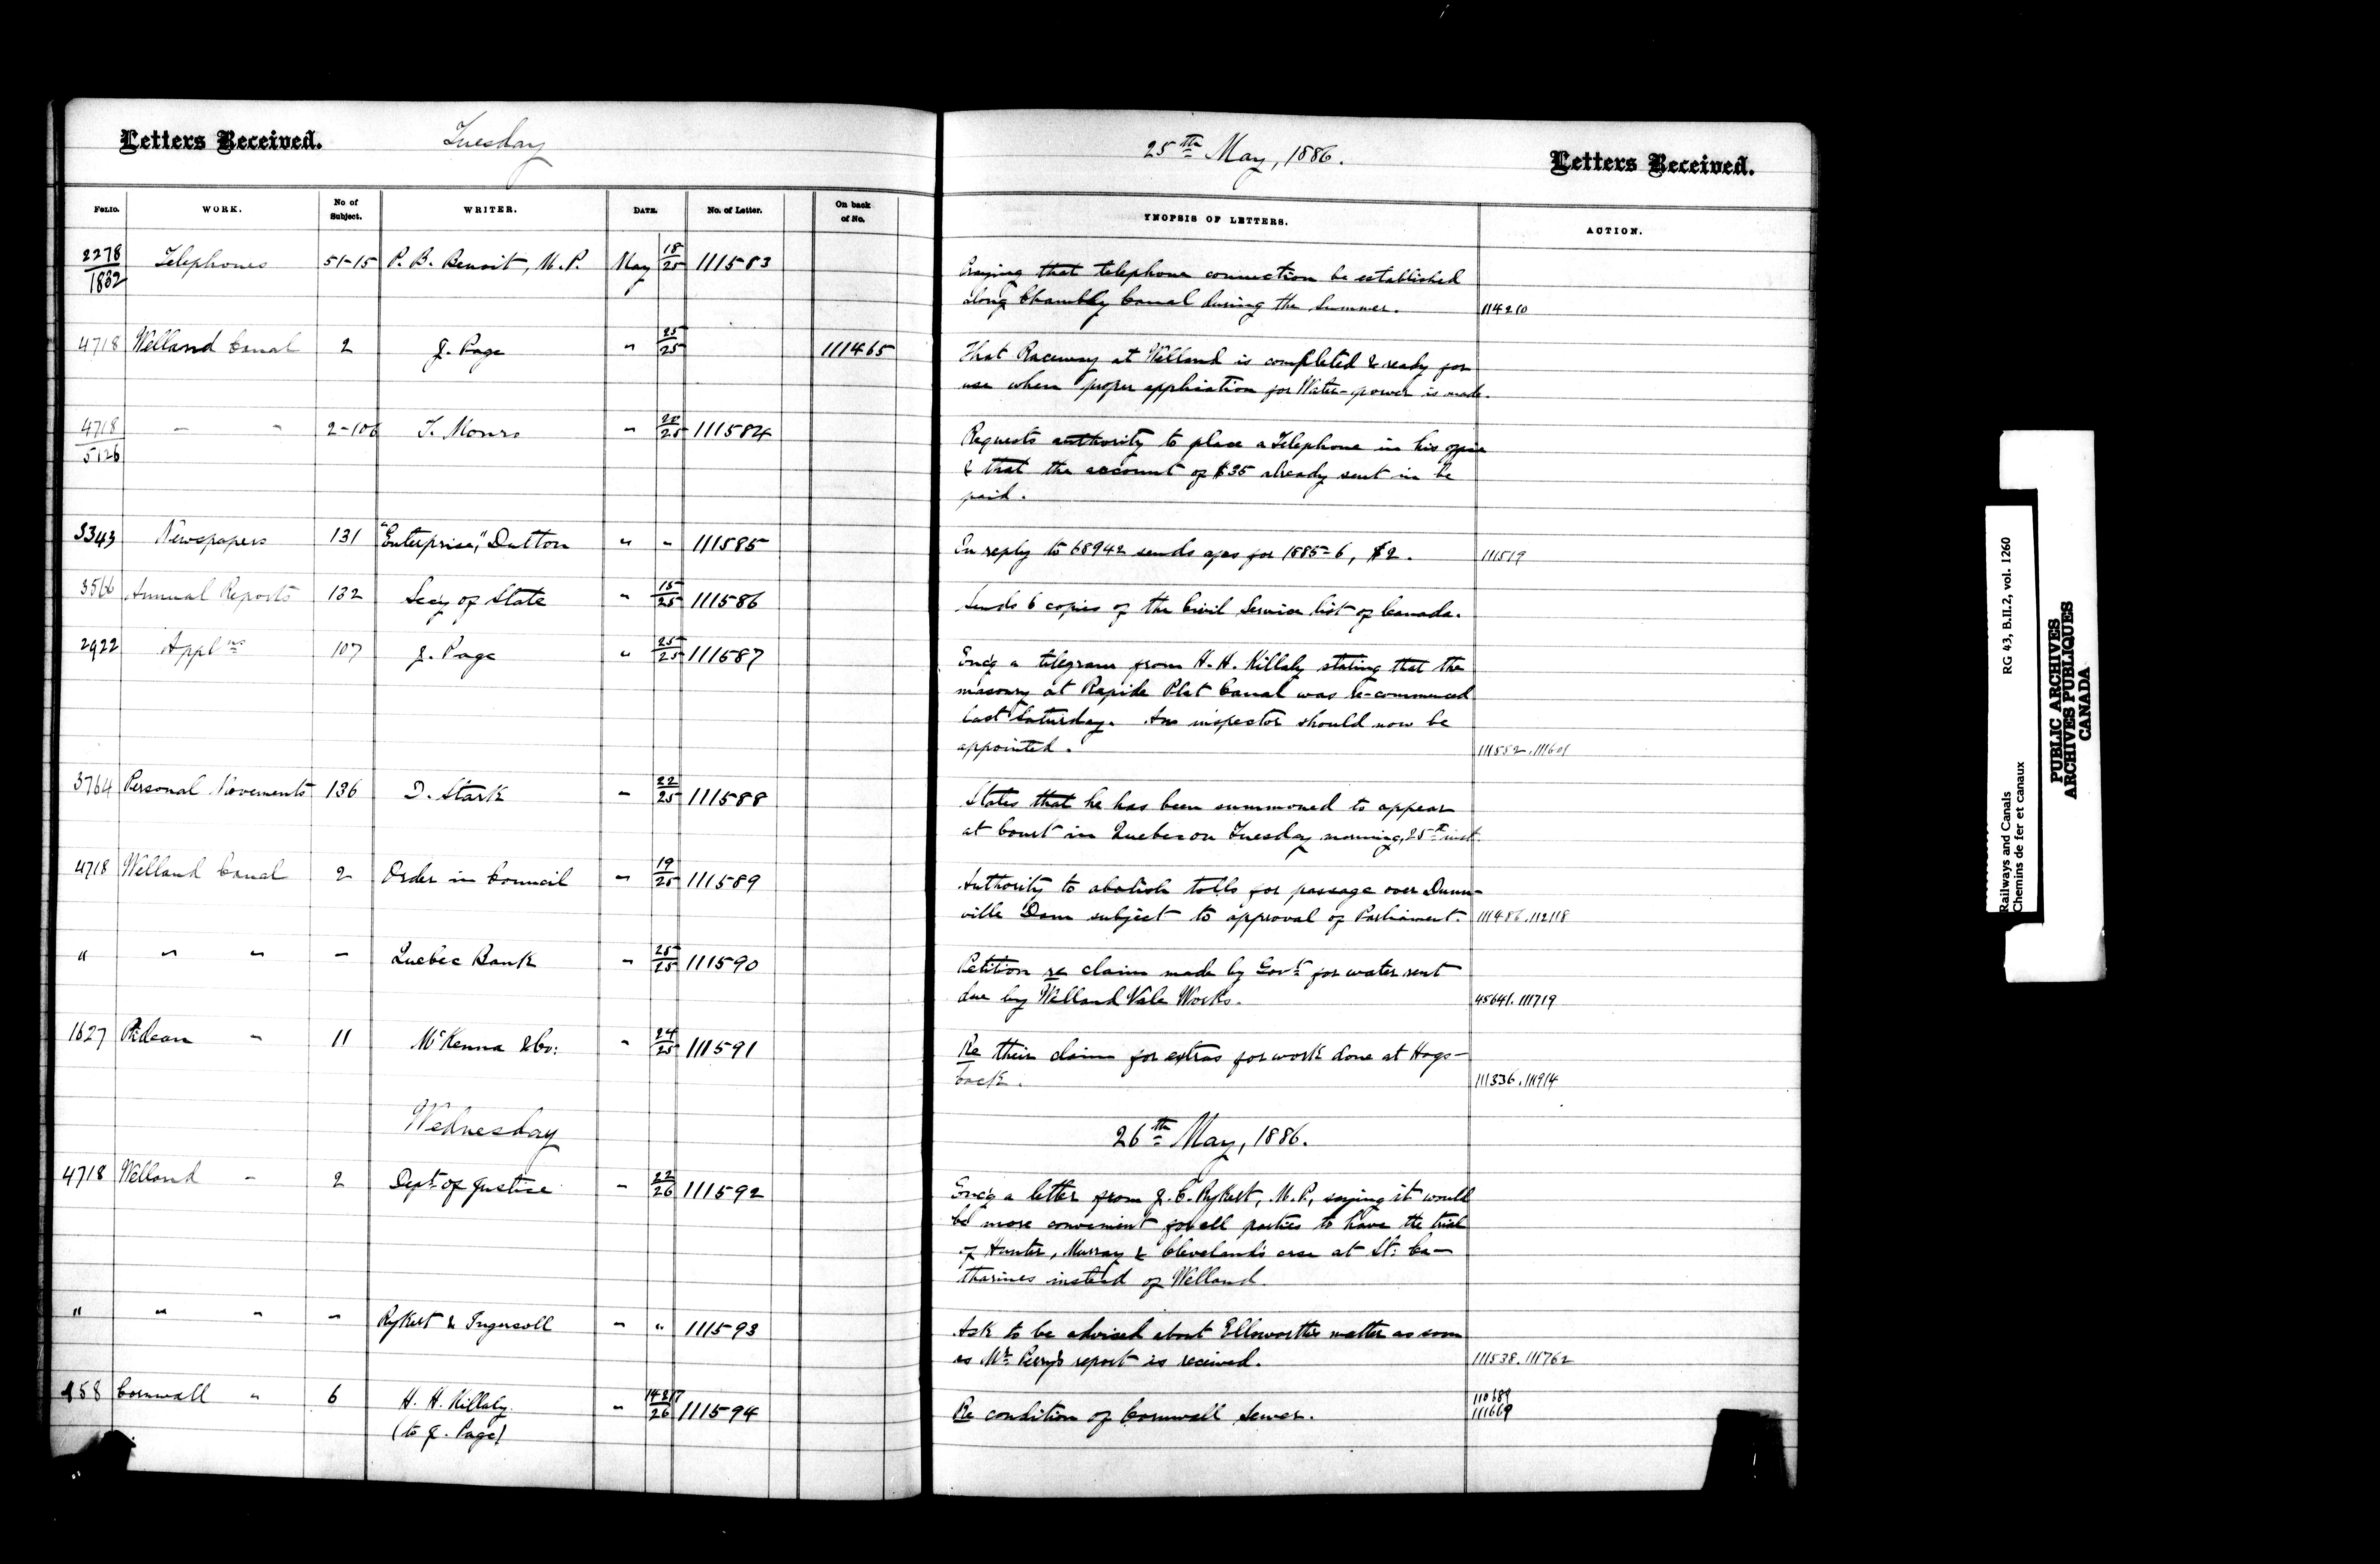 Letters Received. Tuesday 25th May, 1886. Letters Received.
FOLIO. WORK. No of Subject. WRITER. DATE. No. of Letter. On back of No. YNOPSIS OF LETTERS. ACTION.
2278/1832 Telephones 51-15 P. B. Benoit, M.P. May 18/25 111583
Praying that telephone connection be established
along Chambly Canal during the Summer. 114210
4718 Welland Canal 2 J. Page " 25/25 111465
That Raceway at Welland is completed & ready for
use when proper application for Water-power is made.
4718/5126 " " 2-106 T. Monro " 22/25 111584
Requests authority to place a Telephone in his office
& that the account of $35 already sent in be
paid.
3343 Newspapers 131 "Enterprise," Dutton " " 111585
In reply to 68942 sends a/cs for 1885-6, $2. 111519
3566 Annual Reports 132 Secy of State " 15/25 111586
Sends 6 copies of the Civil Service list of Canada.
2922 Applns 107 J. Page " 25/25 111587
Enc'g a telegram from H. H. Killaly stating that the
masonry at Rapide Plat Canal was re-commenced
last Saturday. An inspector should now be
appointed. 111552.111601
3764 Personal Movements 136 D. Stark " 22/25 111588
States that he has been summoned to appear
at Court in Quebec on Tuesday morning, 25th inst.
4718 Welland Canal 2 Order in Council " 19/25 111589
Authority to abolish tolls for passage over Dunn-
ville Dam subject to approval of Parliament. 111486.112118
" " " " Quebec Bank " 25/25 111590
Petition re claim made by Govt for water rent
due by Welland Vale Works. 45641.111719
1627 Rideau " 11 McKenna & Co: " 24/25 111591
Re their claim for extras for work done at Hogs-
back. 111336.111914
Wednesday 26th May, 1886.
4718 Welland " 2 Dept of Justice " 22/26 111592
Enc'g a letter from J. C. Rykert, M.P., saying it would
be more convenient for all parties to have the trial
of Hunter, Murray & Cleveland's case at St. Ca-
tharines instead of Welland.
" " " " Rykert & Ingersoll " " 111593
Ask to be advised about Ellsworth's matter as soon
as Mr. Perry's report is received. 111538.111762
158 Cornwall " 6 H. H. Killaly " 14&17/26 111594
(to J. Page)
Re condition of Cornwall Sewer. 110689
111669
Railways and Canals RG 43, B.II.2, vol. 1260
Chemins de fer et canaux
PUBLIC ARCHIVES
ARCHIVES PUBLIQUES
CANADA